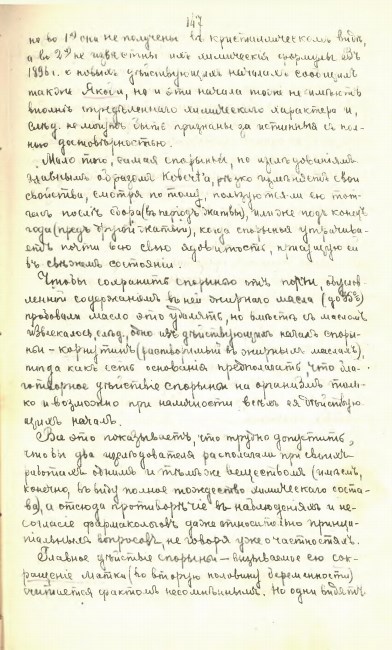 147
но во 1х она не получены въ кристаллическомъ видѣ,
а во 2х не извѣстны ихъ химическія формулы. Въ
1896 г. о новыхъ дѣйствующихъ началахъ сообщилъ
также Якоби, но и эти начала тоже не имѣютъ
вполнѣ опредѣленнаго химическаго характера и,
слѣд. не могутъ быть признаны за истинныя съ пол-
ною достовѣрностью.
Мало того, самая спорынья, по изслѣдованіямъ
главнымъ образомъ Kobert'а, рѣзко измѣняетъ свои
свойства, смотря по тому, пользуются-ли ею тот-
часъ послѣ сбора (въ періодъ жатвы), или же подъ конецъ
года (предъ другой жатвы), когда спорынья утрачива-
етъ почти всю свою ядовитость, присущую ей
въ свѣжемъ состояніи.
Чтобы сохранить спорынью отъ порчи, обуслов-
ленной содержаніемъ въ ней жирнаго масла (до 35%)
пробовали масло это удалять, но вмѣстѣ съ масломъ
извлекалось, слѣд. одно изъ дѣйствующихъ началъ споры-
ньи - корнутинъ (растворимый въ жирныхъ маслахъ),
тогда какъ есть основанія предполагать что бла-
готворное дѣйствіе спорыньи на организмъ толь-
ко и возможно при наличности всѣхъ ея дѣйствую-
щихъ началъ.
Все это показываетъ, что трудно допустить,
чтобы два изслѣдователя располагали при своихъ
работахъ однимъ и тѣмъ же веществомъ (имѣемъ,
конечно, въ виду полное тождество химическаго соста-
ва), а отсюда противорѣчіе въ наблюденіяхъ и не-
согласіе фармакологовъ даже относительно принци-
піальныхъ вопросовъ, не говоря уже о частностяхъ.
Главное дѣйствіе спорыньи - вызываемое ею сок-
ращеніе матки (во вторую половину беременности)
считается фактомъ несомнѣннымъ. Но одни видятъ